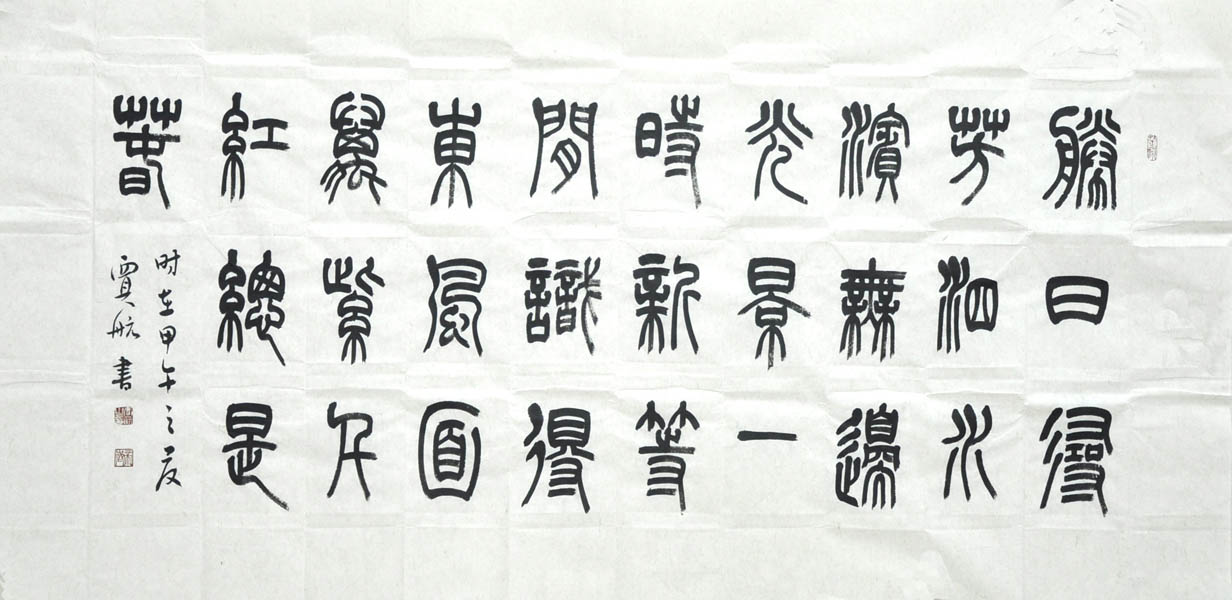 勝日尋
芳泗水
濱無邊
光景一
時新等
閒識得
東風面
萬紫千
紅總是
春
时在甲午之夏
賈航書